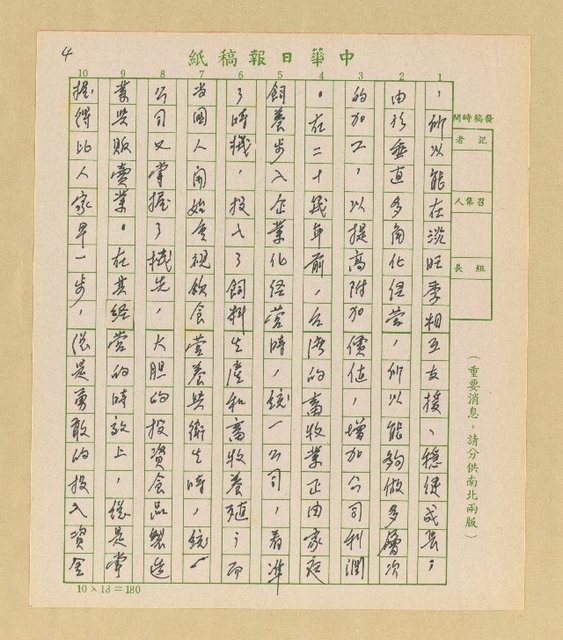 4
中華日報稿紙
1 2 3 4 5 6 7 8 9 10
,所以能在淡旺季相互支援、穩健成長;
由於垂直多角化経营,所以能夠做多層次
的加工,以提高附加價值,增加公司利潤
。在二十幾年前,台湾的畜牧業正由家庭
飼養步入企業化経营時,統一公司,看準
了時機,投入了飼料生產和畜牧養殖;而
当國人開始重視飲食营養與衛生時,統一
公司又掌握了機先,大胆的投資食品製造
業與販賣業。在其経营的時效上,總是掌
握得比人家早一步,總是勇敢的投入資金
發稿時間
記者
召集人
組長
(重要消息,請分供南北兩版)
10×18=180